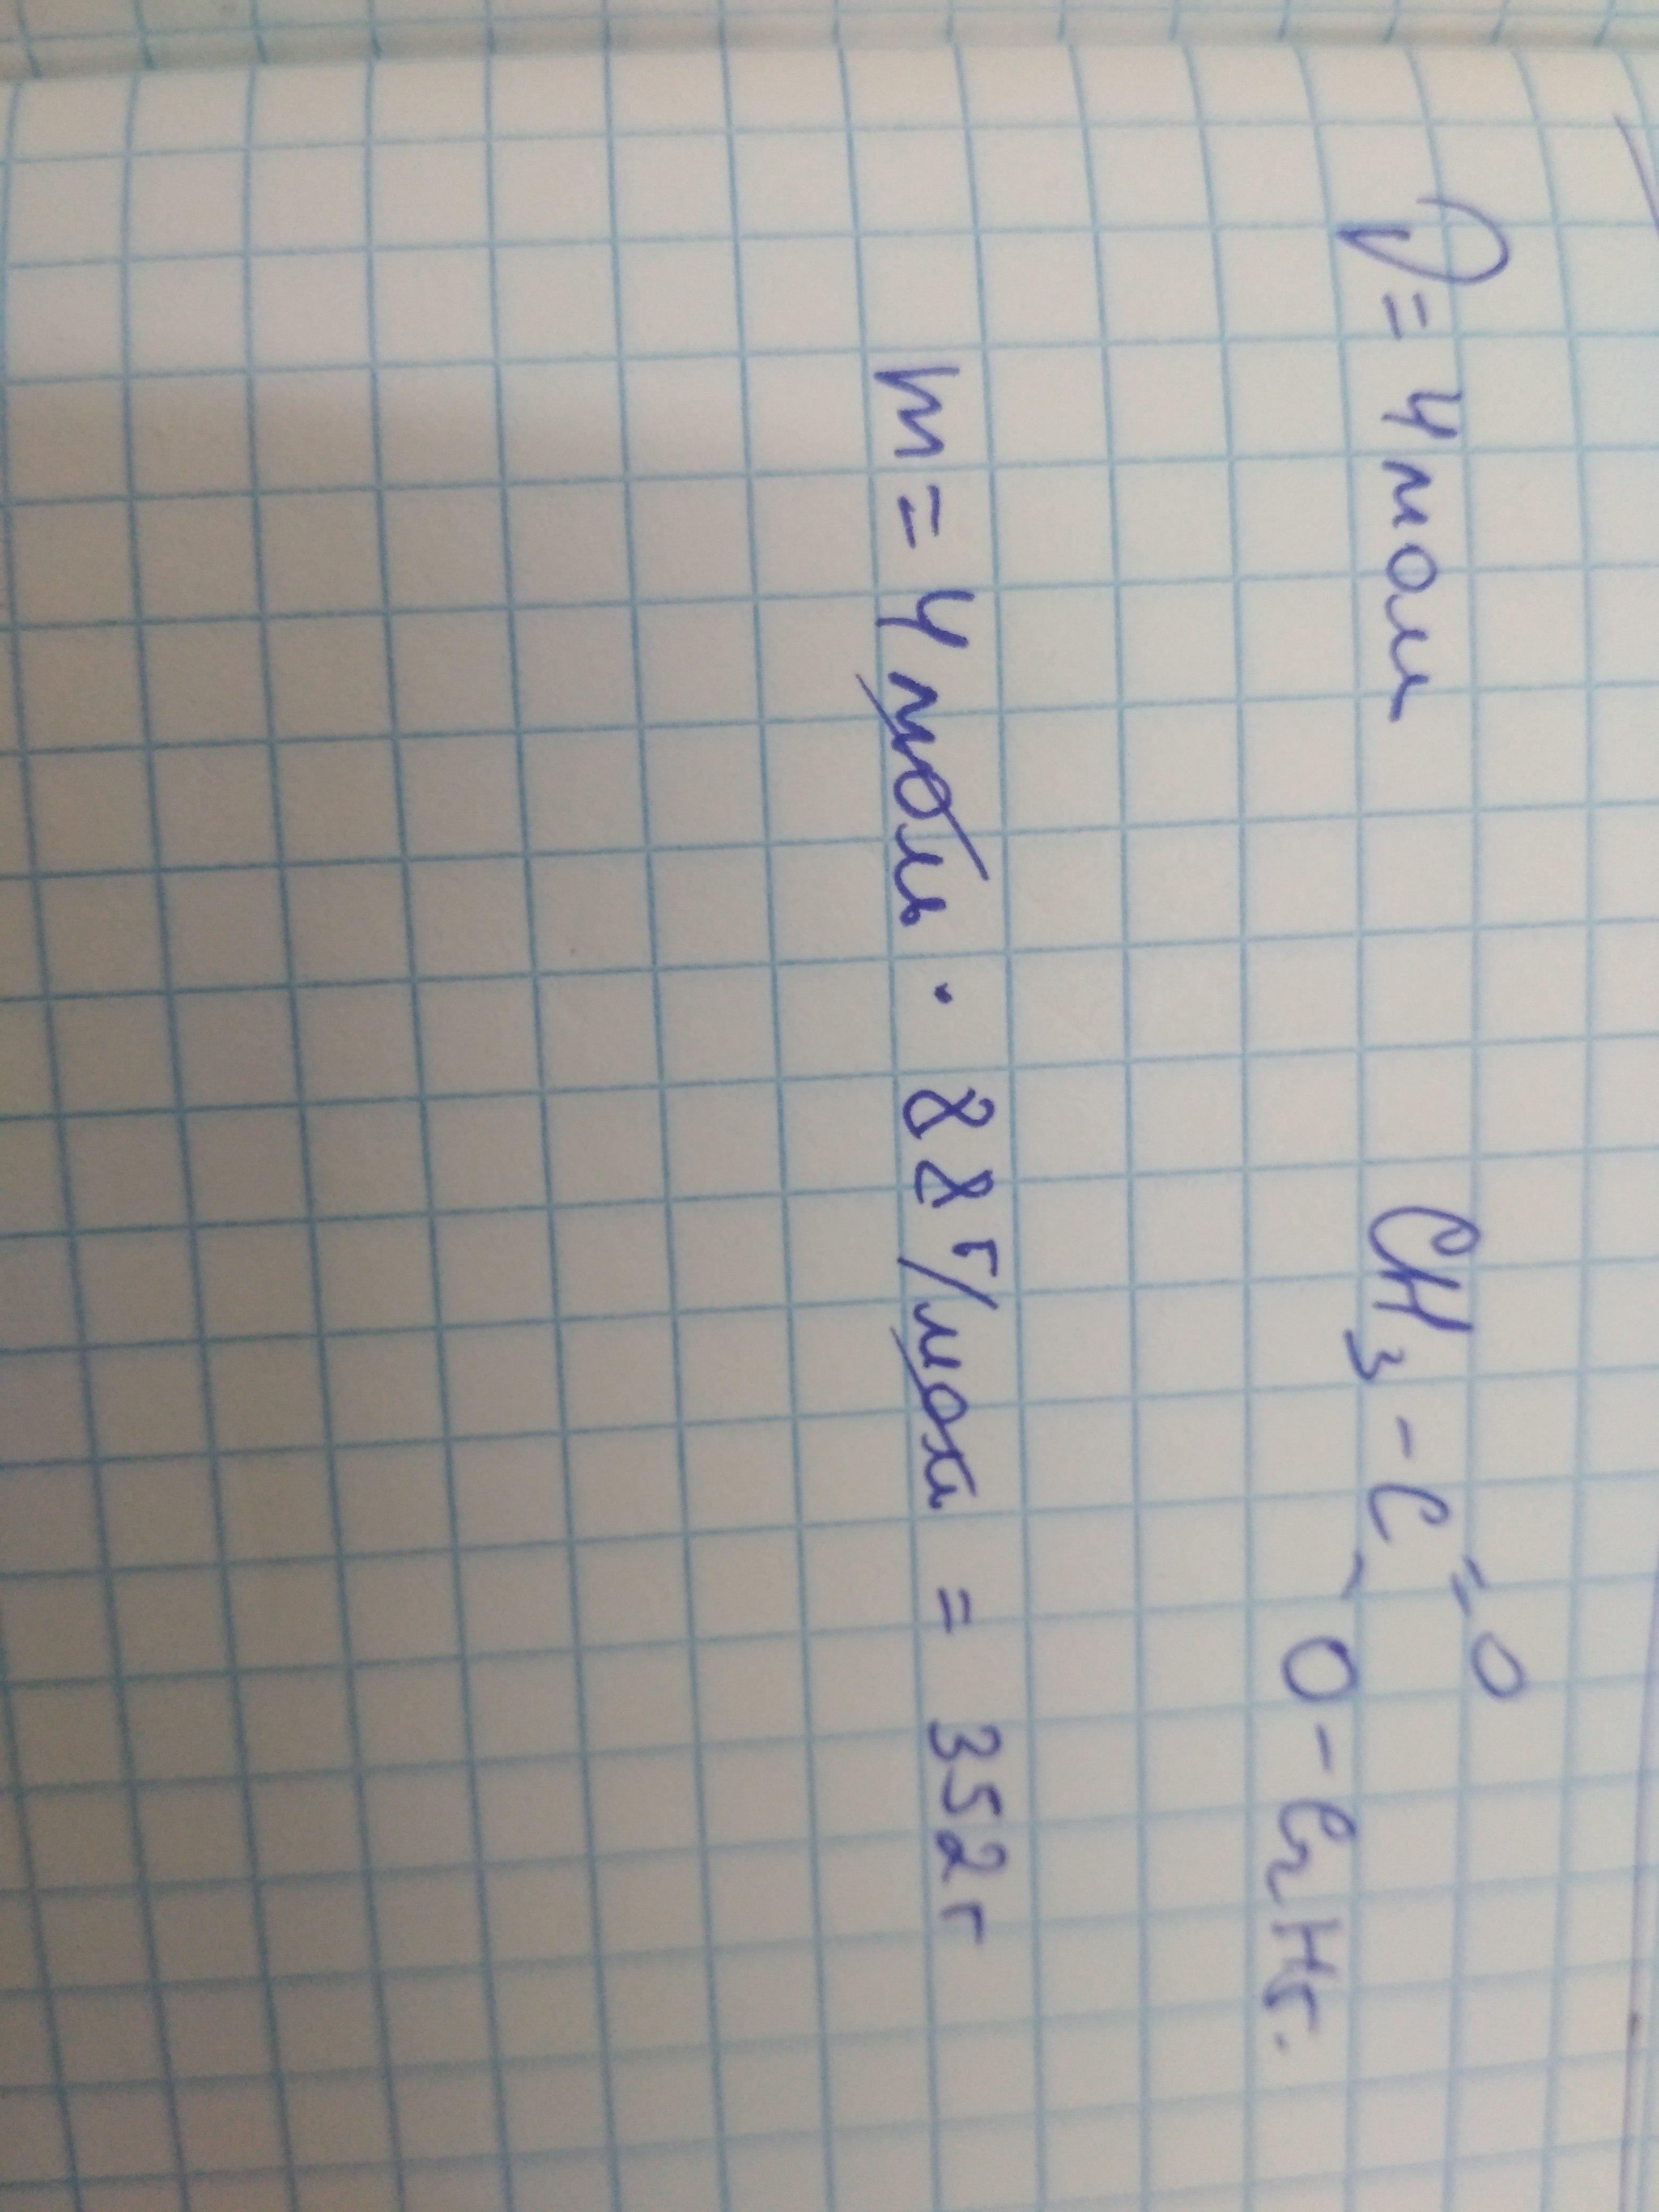 ν = 4 моль CH₃ - C = O - O - C₂H₅.
m = 4 моль · 88 г/моль = 352 г